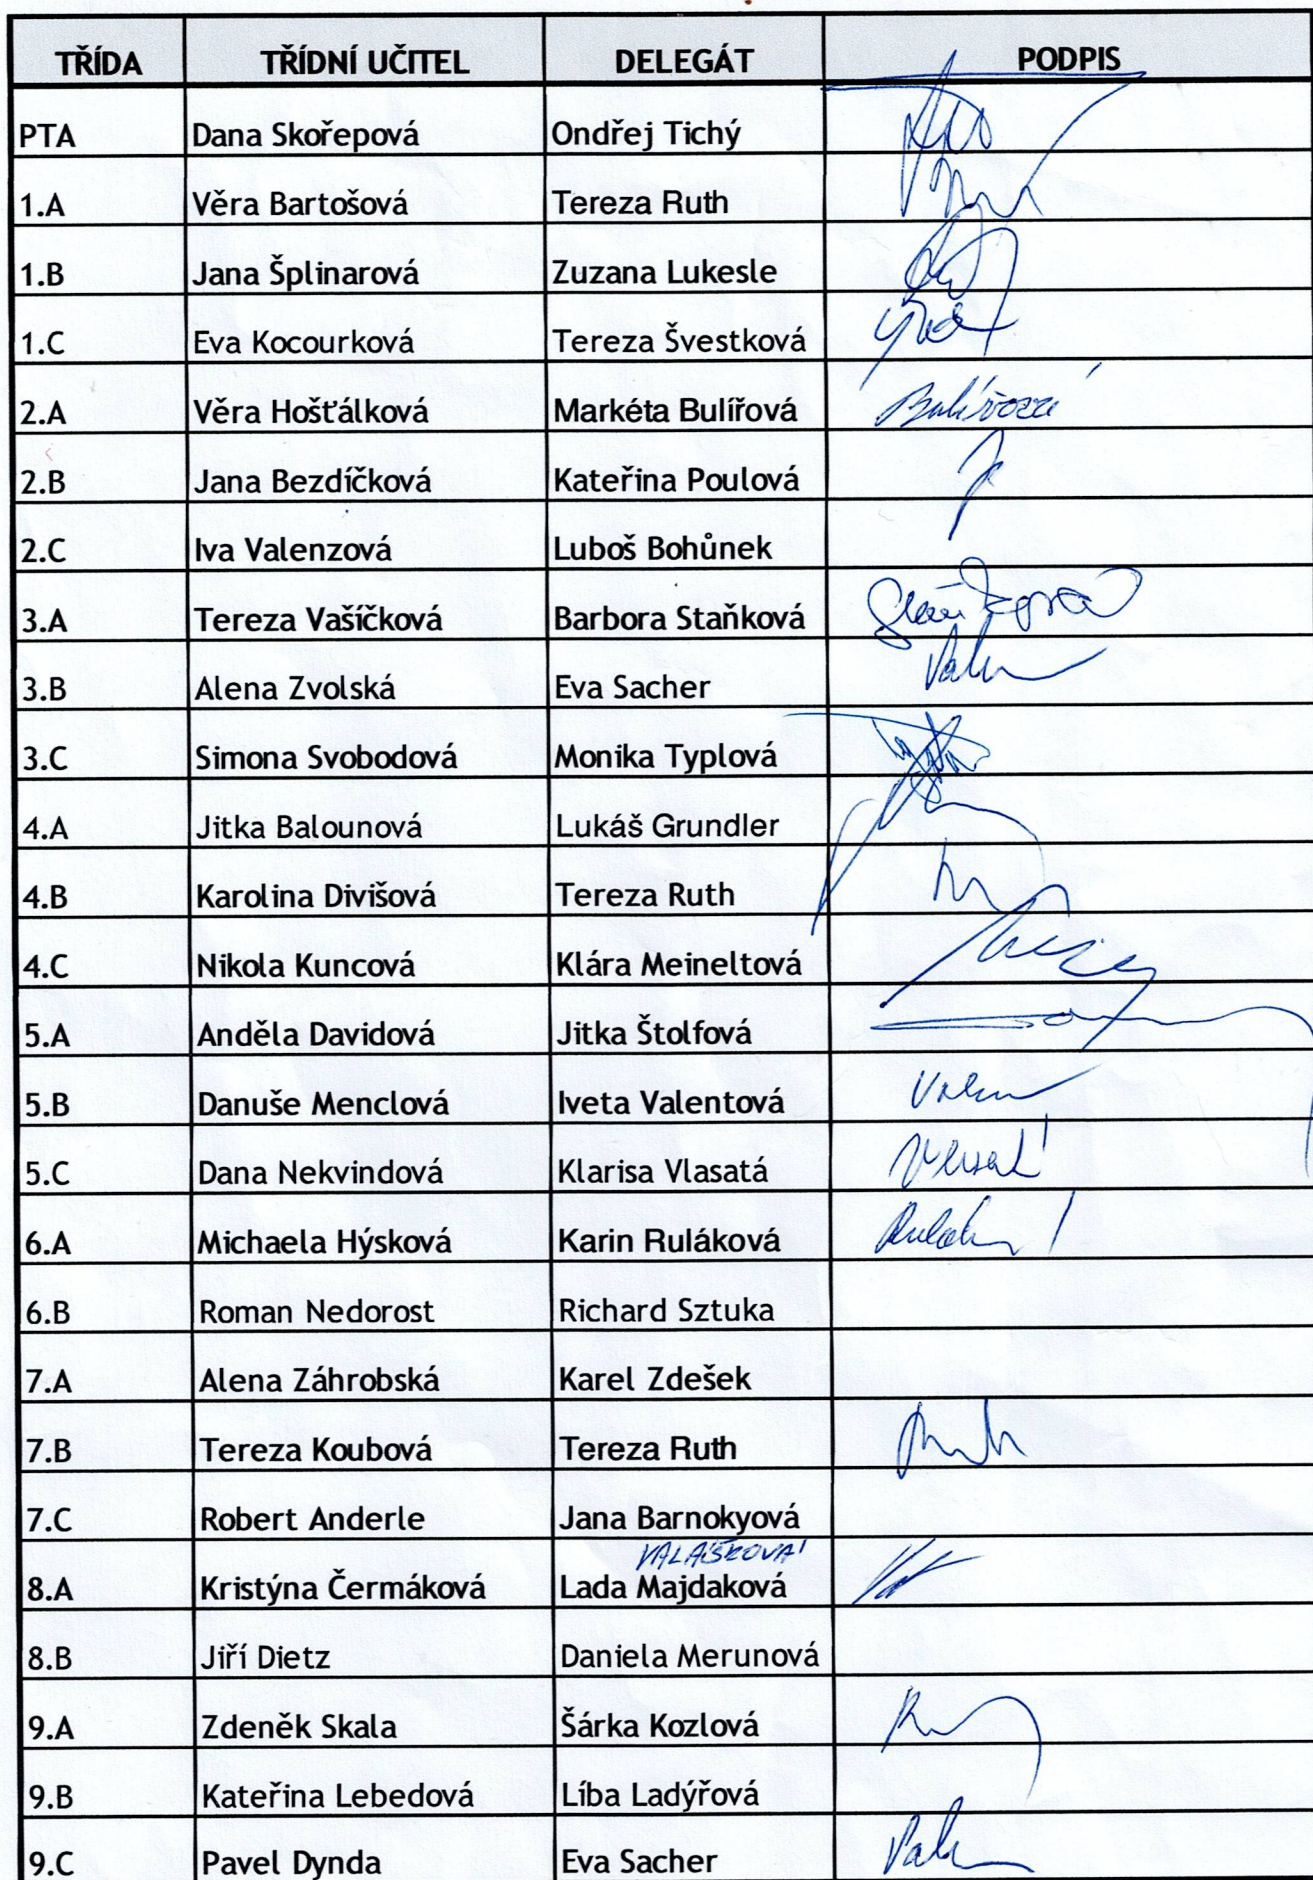 TŘÍDA TŘÍDNÍ UČITEL DELEGÁT PODPIS
PTA Dana Skořepová Ondřej Tichý
1.A Věra Bartošová Tereza Ruth
1.B Jana Šplinarová Zuzana Lukesle
1.C Eva Kocourková Tereza Švestková
2.A Věra Hošťálková Markéta Bulířová Bulířová
2.B Jana Bezdíčková Kateřina Poulová
2.C Iva Valenzová Luboš Bohůnek
3.A Tereza Vašíčková Barbora Staňková Staňková
3.B Alena Zvolská Eva Sacher
3.C Simona Svobodová Monika Typlová
4.A Jitka Balounová Lukáš Grundler
4.B Karolina Divišová Tereza Ruth
4.C Nikola Kuncová Klára Meineltová
5.A Anděla Davidová Jitka Štolfová
5.B Danuše Menclová Iveta Valentová
5.C Dana Nekvindová Klarisa Vlasatá
6.A Michaela Hýsková Karin Ruláková
6.B Roman Nedorost Richard Sztuka
7.A Alena Záhrobská Karel Zdešek
7.B Tereza Koubová Tereza Ruth
7.C Robert Anderle Jana Barnokyová
VALÁŠKOVÁ
8.A Kristýna Čermáková Lada Majdaková
8.B Jiří Dietz Daniela Merunová
9.A Zdeněk Skala Šárka Kozlová
9.B Kateřina Lebedová Líba Ladýřová
9.C Pavel Dynda Eva Sacher